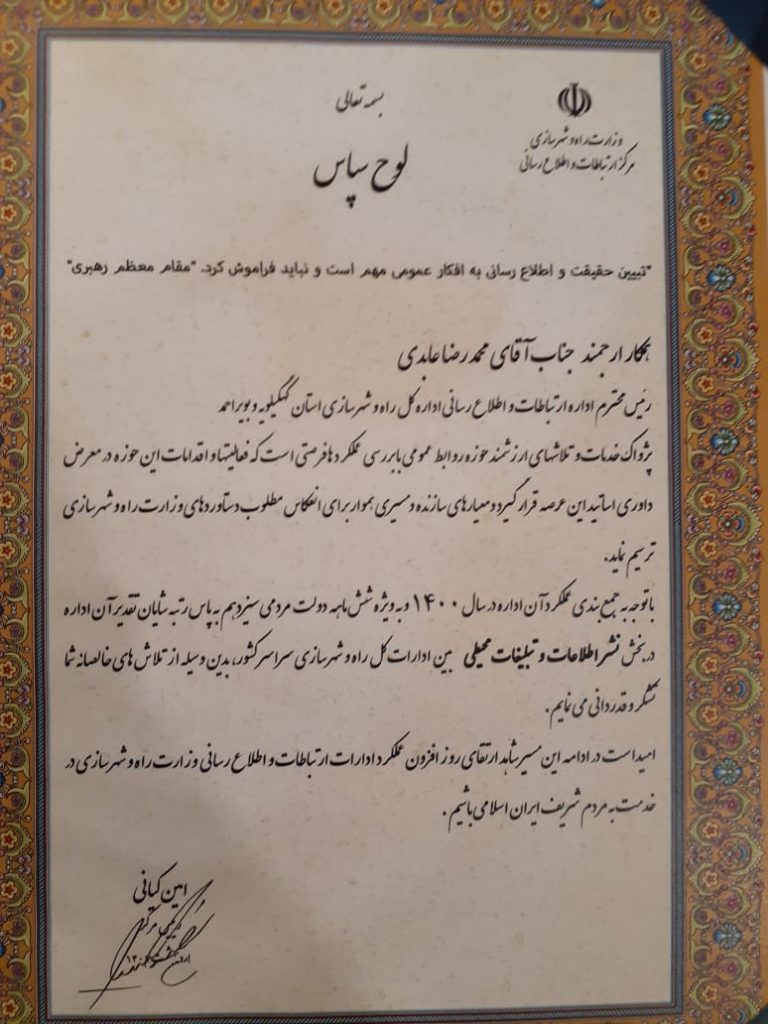 بسمه تعالی
وزارت راه و شهرسازی
مرکز ارتباطات و اطلاع رسانی
لوح سپاس
"تبیین حقیقت و اطلاع رسانی به افکار عمومی مهم است و نباید فراموش کرد. "مقام معظم رهبری"
همکار ارجمند جناب آقای محمدرضا عابدی
رئیس محترم اداره ارتباطات و اطلاع رسانی اداره کل راه و شهرسازی استان کهگیلویه و بویراحمد
پژواک خدمات و تلاشهای ارزشمند حوزه روابط عمومی با بررسی عملکردها فرصتی است که فعالیتها و اقدامات این حوزه در معرض
داوری اساتید این عرصه قرار گیرد و معیارهای سازنده و مسیری هموار برای انعکاس مطلوب دستاوردهای وزارت راه و شهرسازی
ترسیم نماید.
با توجه به جمع بندی عملکرد آن اداره در سال ۱۴۰۰ و به ویژه شش ماهه دولت مردمی سیزدهم به پاس رتبه شایان تقدیر آن اداره
در بخش نشر اطلاعات و تبلیغات محیطی بین ادارات کل راه و شهرسازی سراسر کشور، بدین وسیله از تلاش های خالصانه شما
تشکر و قدردانی می نمایم.
امید است در ادامه این مسیر شاهد ارتقای روز افزون عملکرد ادارات ارتباطات و اطلاع رسانی وزارت راه و شهرسازی در
خدمت به مردم شریف ایران اسلامی باشیم.
امین کیانی